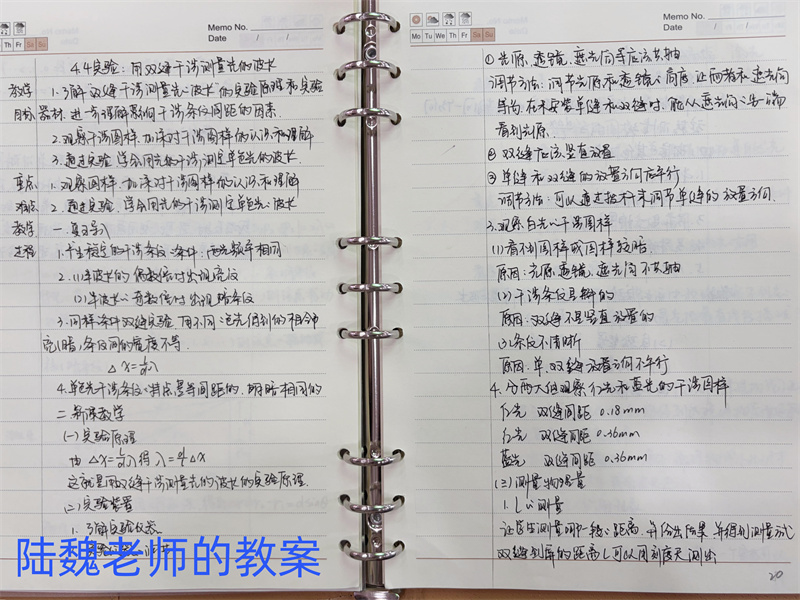 Memo No.
Date / /
Th Fr Sa Su
4.4实验：用双缝干涉测量光的波长
教学 1.了解"双缝干涉测量光的波长"的实验原理和实验
目标 器材，进一步理解影响干涉条纹间距的因素.
2.观察干涉图样，加深对干涉图样的认识和理解
3.通过实验，学会用光的干涉测定单色光的波长.
重点 1.观察图样，加深对干涉图样的认识和理解
难点 2.通过实验，学会用光的干涉测定单色光的波长
教学 一、复习导入
过程 1.产生稳定的干涉条纹的条件：两光频率相同
2.(1)半波长的偶数倍时出现亮纹
(2)半波长的奇数倍时出现暗条纹
3.同样条件双缝实验，用不同的色光得到的相邻
亮(暗)条纹间的宽度不等.
△x=L/dλ
4.单色光干涉条纹的特点是等间距的，明暗相间的
二、新课教学
(一)实验原理
由 △x=L/dλ得 λ=d/L△x
这就是用双缝干涉测量光的波长的实验原理.
(二)实验装置
1.了解实验仪器
陆魏老师的教案
Memo No.
Date / /
Mo Tu We Th Fr Sa Su
①光源、透镜、遮光筒等应该共轴
调节方法：调节光源和透镜的高度，让两者和遮光筒
共轴，在未安装单缝和双缝时，能从遮光筒的另一端
看到光源.
②双缝应该竖直放置
③单缝和双缝的放置方向应平行
调节方法：可以通过拨杆来调节单缝的放置方向.
3.观察白光的干涉图样
(1)看不到图样或图样较暗.
原因：光源、透镜、遮光筒不共轴
(2)干涉条纹是斜的
原因：双缝不是竖直放置的
(3)条纹不清晰
原因：单、双缝放置方向不平行
4.分两大组观察红光和蓝光的干涉图样
红光 双缝间距 0.18mm
红光 双缝间距 0.36mm
蓝光 双缝间距 0.36mm
(三)测量物理量
1.L的测量
双缝到屏的距离L可以用刻度尺测出
20